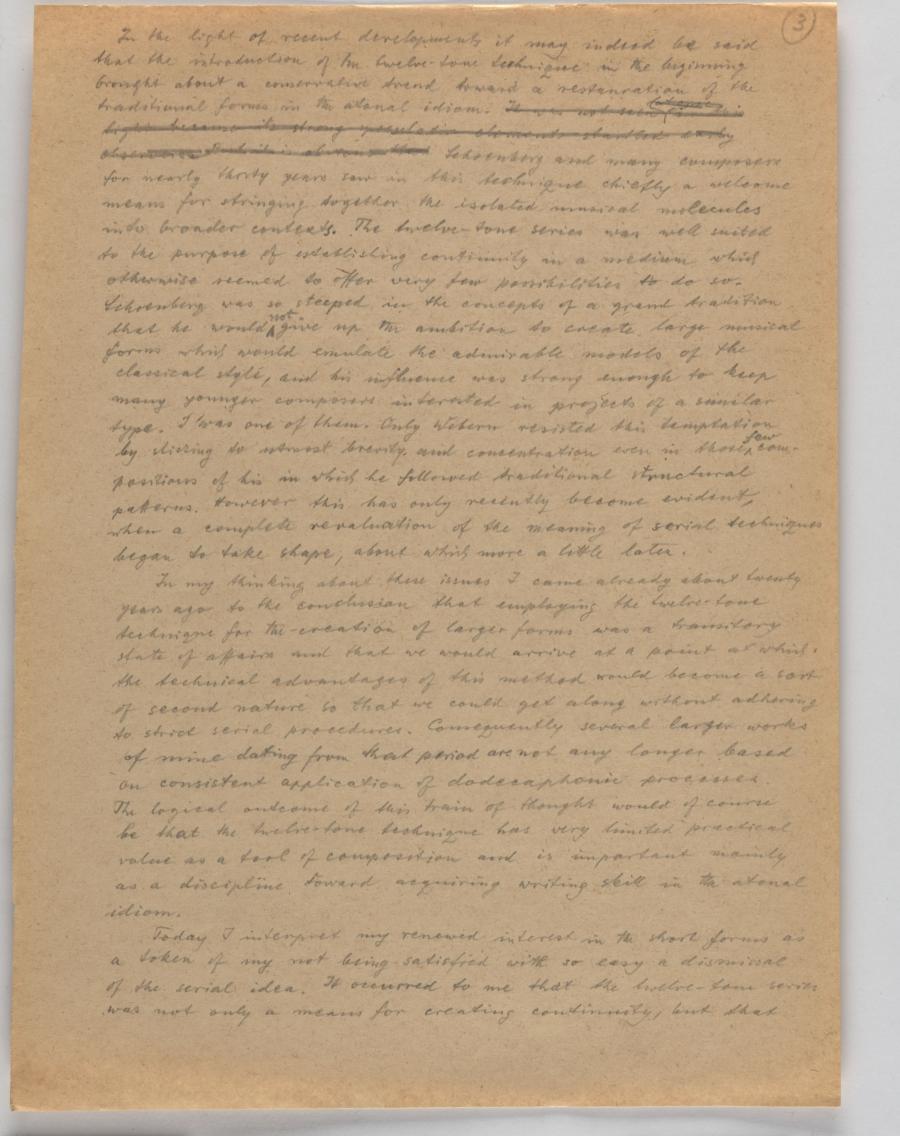 3
In the light of recent developments it may indeed be said
that the introduction of the twelve-tone technique in the beginning
brought about a conservative trend toward a restauration of the
traditional forms in the atonal idiom. It was not seen in this
light because its strong elements startled early
observers But it is obvious that Schoenberg and many composers
for nearly thirty years saw in this technique chiefly a welcome
means for stringing together the isolated musical molecules
into broader contexts. The twelve-tone series was well suited
to the purpose of establishing continuity in a medium which
otherwise seemed to offer very few possibilities to do so.
Schoenberg was so steeped in the concepts of a grand tradition
that he would not give up the ambition to create large musical
forms which would emulate the admirable models of the
classical style, and his influence was strong enough to keep
many younger composers interested in projects of a similar
type. I was one of them. Only Webern resisted this temptation
by sticking to utmost brevity and concentration even in those few com-
positions of his in which he followed traditional structural
patterns. However this has only recently become evident,
when a complete revaluation of the meaning of serial techniques
began to take shape, about which more a little later.
In my thinking about these issues I came already about twenty
years ago to the conclusion that employing the twelve-tone
technique for the creation of larger forms was a transitory
state of affairs and that we would arrive at a point at which
the technical advantages of this method would become a sort
of second nature so that we could get along without adhering
to strict serial procedures. Consequently several larger works
of mine dating from that period are not any longer based
on consistent application of dodecaphonic processes.
The logical outcome of this train of thought would of course
be that the twelve-tone technique has very limited practical
value as a tool of composition and is important mainly
as a discipline toward acquiring writing skill in the atonal
idiom.
Today I interpret my renewed interest in the short forms as
a token of my not being satisfied with so easy a dismissal
of the serial idea. It occurred to me that the twelve-tone series
was not only a means for creating continuity, but that